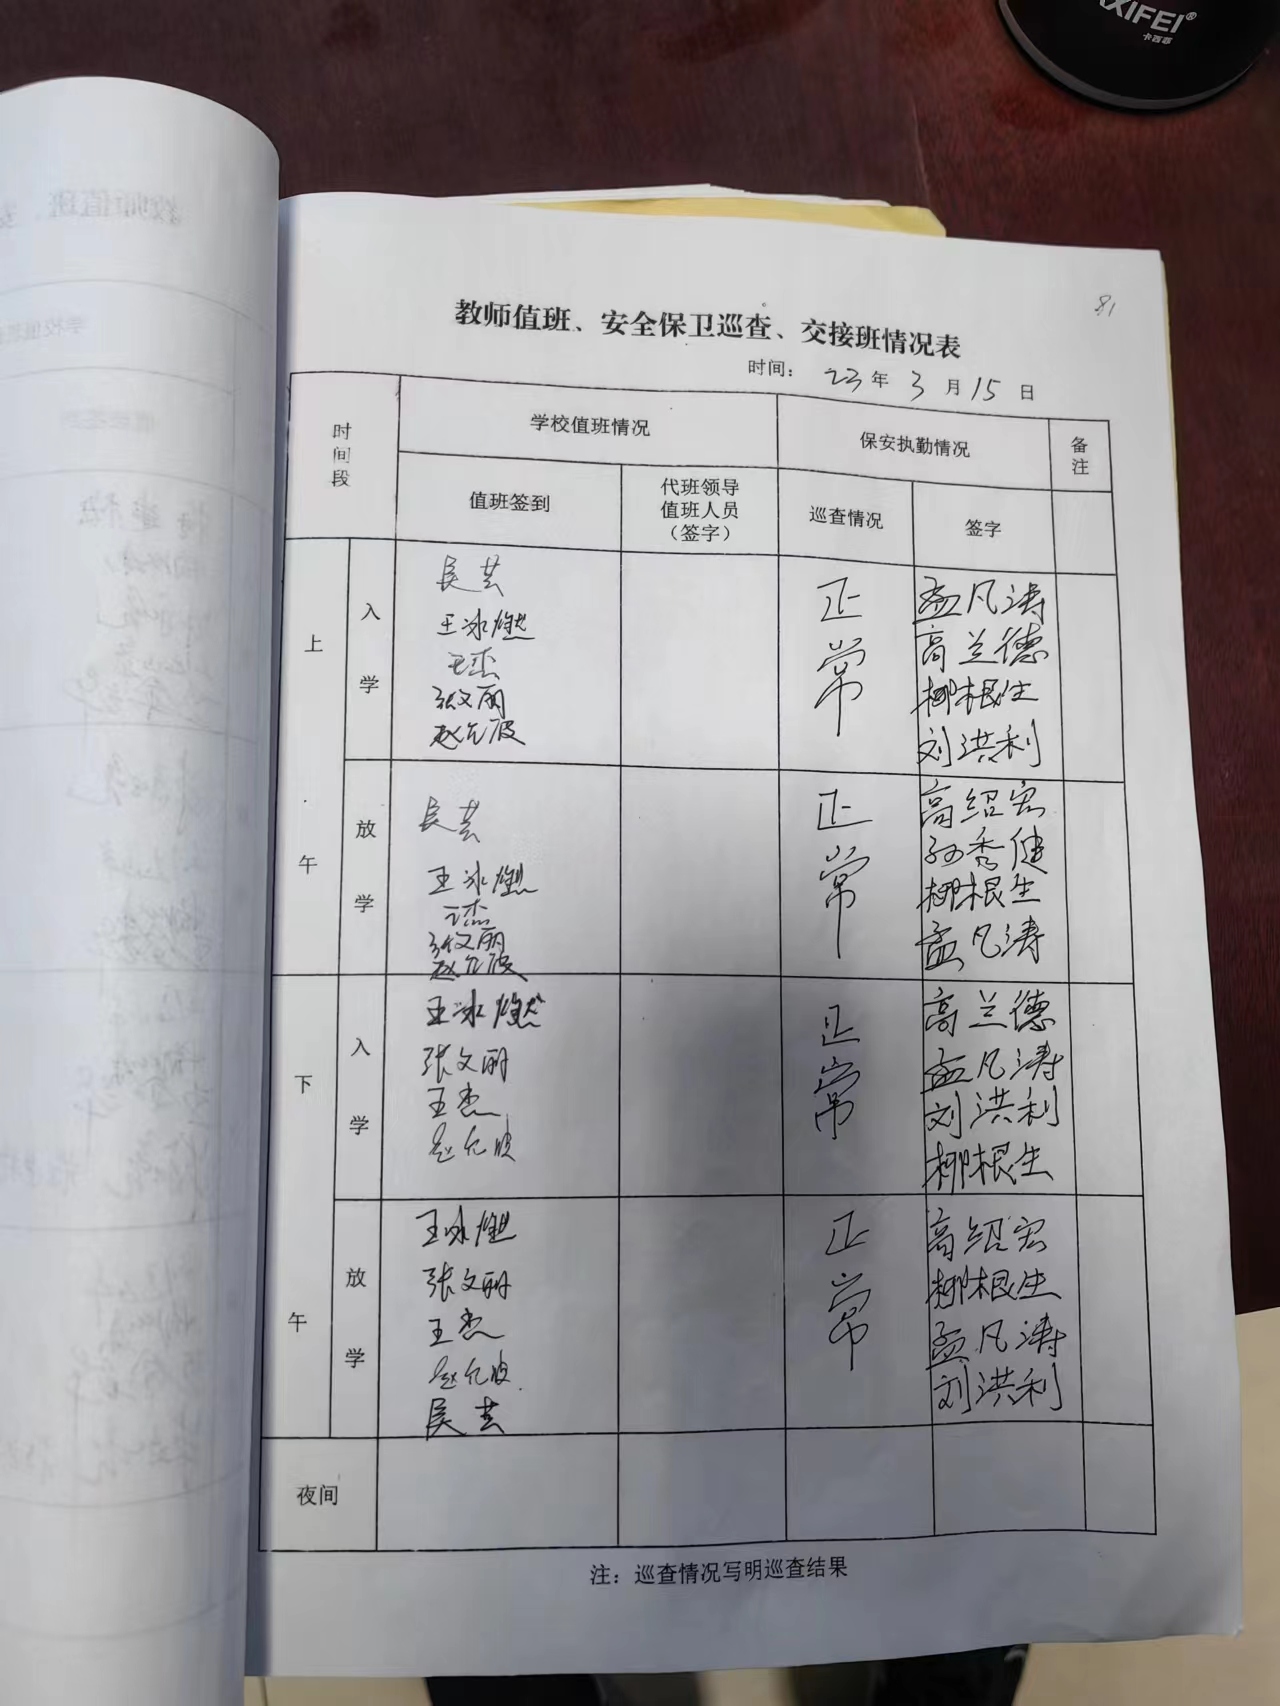 XIFEI®
卡西菲
81
教师值班、安全保卫巡查、交接班情况表
时间： 23年 3月 15日
时间段
学校值班情况
保安执勤情况
备注
值班签到
代班领导
值班人员
（签字）
巡查情况
签字
上午
入学
吴芸
王冰燃
王杰
张文丽
赵允波
正常
孟凡涛
高兰德
柳根生
刘洪利
放学
吴芸
王冰燃
王杰
张文丽
赵允波
正常
高绍宏
孙秀健
柳根生
孟凡涛
下午
入学
王冰燃
张文丽
王杰
赵允波
正常
高兰德
孟凡涛
刘洪利
柳根生
放学
王冰燃
张文丽
王杰
赵允波
吴芸
正常
高绍宏
柳根生
孟凡涛
刘洪利
夜间
注：巡查情况写明巡查结果